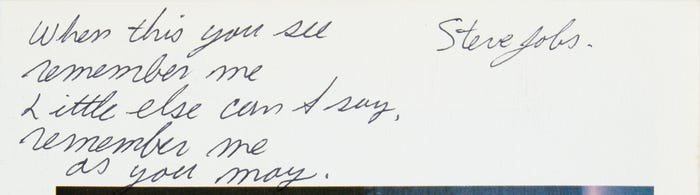 When this you see
remember me
Little else can I say,
remember me
as you may.
Steve Jobs.